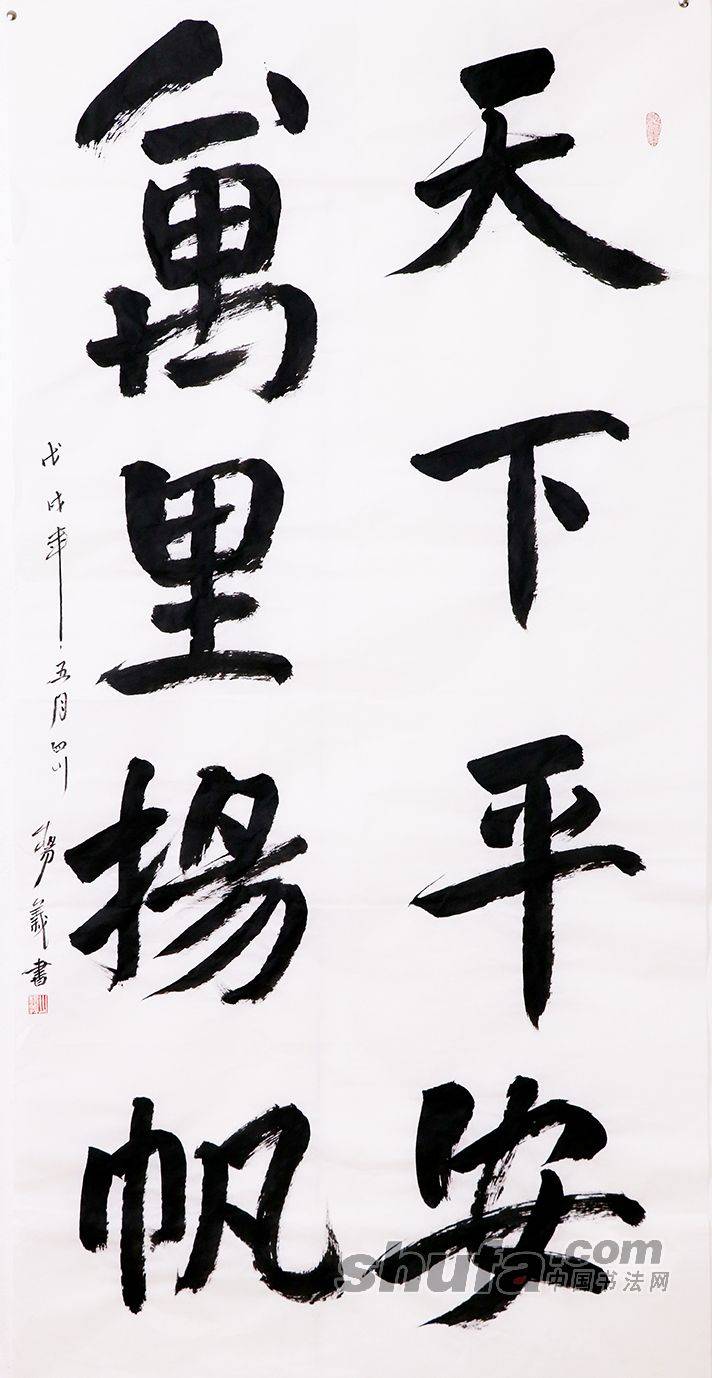 天下平安
萬里揚帆
戊戌年五月四川
楊義書
shufa.com
中国书法网